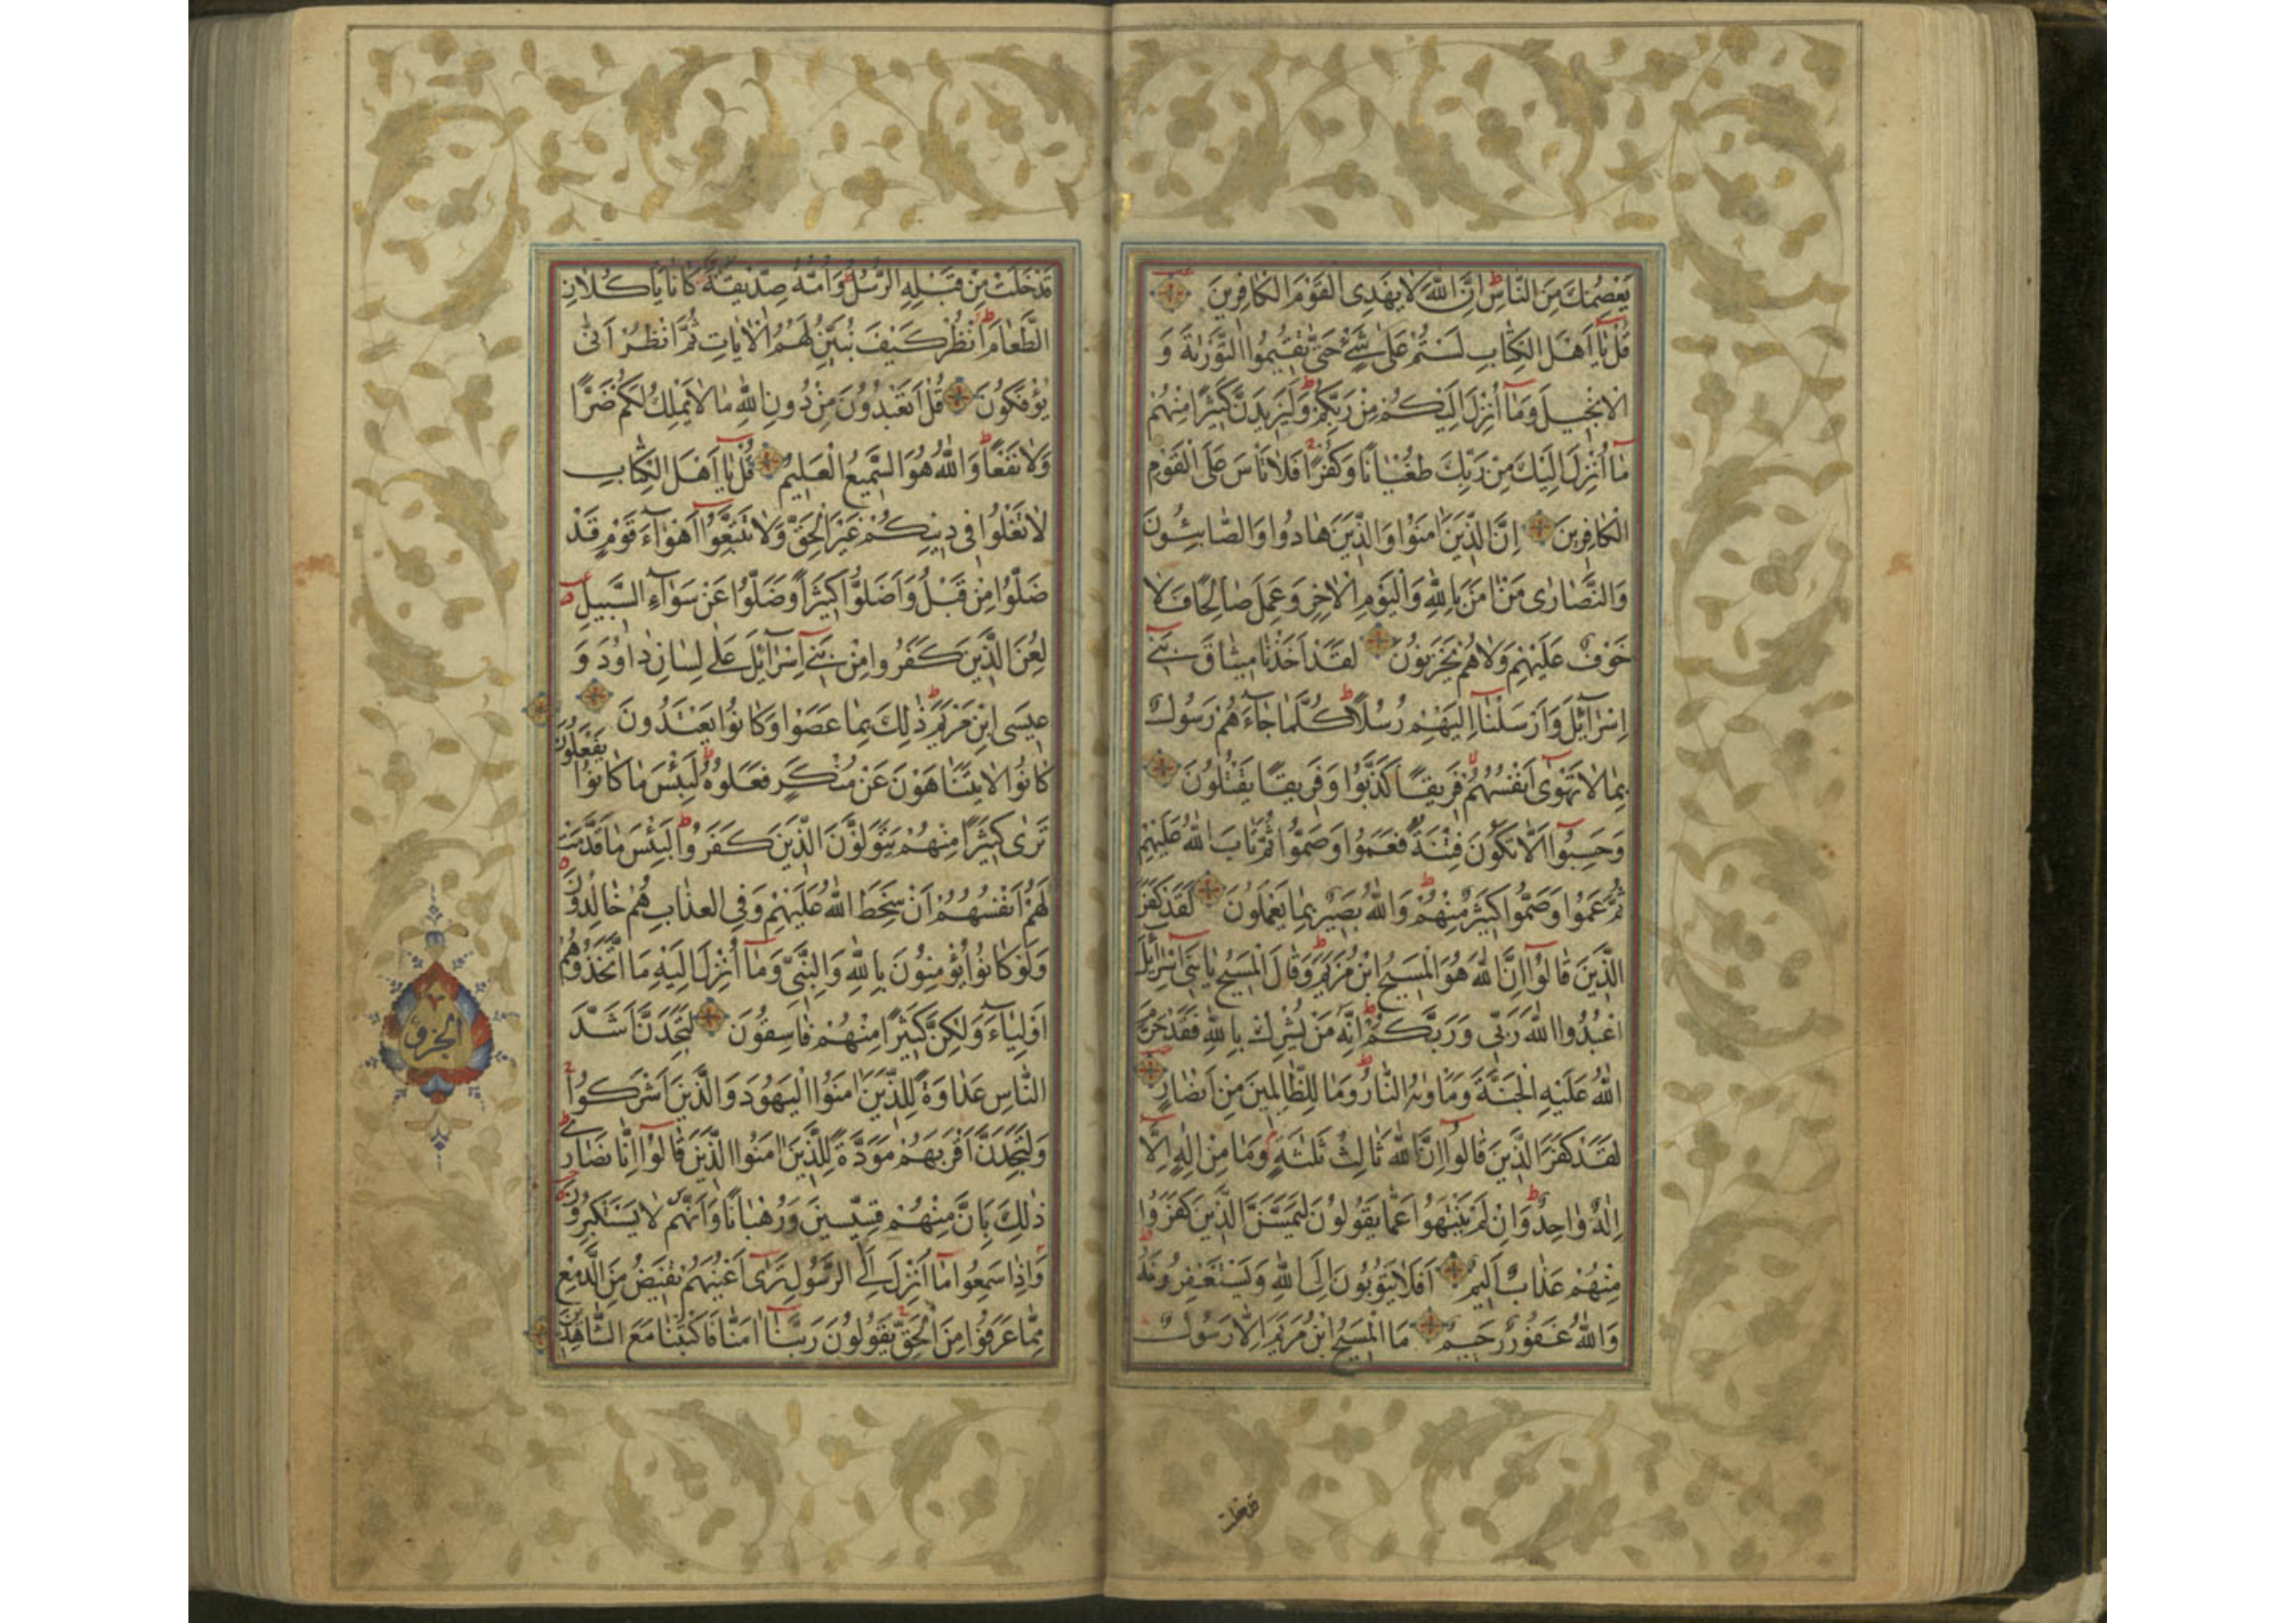 يَعْصِمُكَ مِنَ النَّاسِ اِنَّ اللّٰهَ لَا يَهْدِى الْقَوْمَ الْكَافِرِينَ
قُلْ يَآ اَهْلَ الْكِتَابِ لَسْتُمْ عَلٰى شَىْءٍ حَتّٰى تُقِيمُوا التَّوْرٰيةَ وَ
الْاِنْجِيلَ وَمَآ اُنْزِلَ اِلَيْكُمْ مِنْ رَبِّكُمْ وَلَيَزِيدَنَّ كَثِيرًا مِنْهُمْ
مَآ اُنْزِلَ اِلَيْكَ مِنْ رَبِّكَ طُغْيَانًا وَكُفْرًا فَلَا تَاْسَ عَلَى الْقَوْمِ
الْكَافِرِينَ اِنَّ الَّذِينَ اٰمَنُوا وَالَّذِينَ هَادُوا وَالصَّابِئُونَ
وَالنَّصَارٰى مَنْ اٰمَنَ بِاللّٰهِ وَالْيَوْمِ الْاٰخِرِ وَعَمِلَ صَالِحًا فَلَا
خَوْفٌ عَلَيْهِمْ وَلَا هُمْ يَحْزَنُونَ لَقَدْ اَخَذْنَا مِيثَاقَ بَنِىٓ
اِسْرَآئِلَ وَاَرْسَلْنَآ اِلَيْهِمْ رُسُلًا كُلَّمَا جَآءَهُمْ رَسُولٌ
بِمَا لَا تَهْوٰىٓ اَنْفُسُهُمْ فَرِيقًا كَذَّبُوا وَفَرِيقًا يَقْتُلُونَ
وَحَسِبُوٓا اَلَّا تَكُونَ فِتْنَةٌ فَعَمُوا وَصَمُّوا ثُمَّ تَابَ اللّٰهُ عَلَيْهِمْ
ثُمَّ عَمُوا وَصَمُّوا كَثِيرٌ مِنْهُمْ وَاللّٰهُ بَصِيرٌ بِمَا يَعْمَلُونَ لَقَدْ كَفَرَ
الَّذِينَ قَالُوٓا اِنَّ اللّٰهَ هُوَ الْمَسِيحُ ابْنُ مَرْيَمَ وَقَالَ الْمَسِيحُ يَا بَنِىٓ اِسْرَآئِلَ
اعْبُدُوا اللّٰهَ رَبِّى وَرَبَّكُمْ اِنَّهُ مَنْ يُشْرِكْ بِاللّٰهِ فَقَدْ حَرَّمَ
اللّٰهُ عَلَيْهِ الْجَنَّةَ وَمَاْوٰيهُ النَّارُ وَمَا لِلظَّالِمِينَ مِنْ اَنْصَارٍ
لَقَدْ كَفَرَ الَّذِينَ قَالُوٓا اِنَّ اللّٰهَ ثَالِثُ ثَلٰثَةٍ وَمَا مِنْ اِلٰهٍ اِلَّآ
اِلٰهٌ وَاحِدٌ وَاِنْ لَمْ يَنْتَهُوا عَمَّا يَقُولُونَ لَيَمَسَّنَّ الَّذِينَ كَفَرُوا
مِنْهُمْ عَذَابٌ اَلِيمٌ اَفَلَا يَتُوبُونَ اِلَى اللّٰهِ وَيَسْتَغْفِرُونَهُ
وَاللّٰهُ غَفُورٌ رَحِيمٌ مَا الْمَسِيحُ ابْنُ مَرْيَمَ اِلَّا رَسُولٌ
قد خلت
قَدْ خَلَتْ مِنْ قَبْلِهِ الرُّسُلُ وَاُمُّهُ صِدِّيقَةٌ كَانَا يَاْكُلَانِ
الطَّعَامَ اُنْظُرْ كَيْفَ نُبَيِّنُ لَهُمُ الْاٰيَاتِ ثُمَّ انْظُرْ اَنّٰى
يُؤْفَكُونَ قُلْ اَتَعْبُدُونَ مِنْ دُونِ اللّٰهِ مَا لَا يَمْلِكُ لَكُمْ ضَرًّا
وَلَا نَفْعًا وَاللّٰهُ هُوَ السَّمِيعُ الْعَلِيمُ قُلْ يَآ اَهْلَ الْكِتَابِ
لَا تَغْلُوا فِى دِينِكُمْ غَيْرَ الْحَقِّ وَلَا تَتَّبِعُوٓا اَهْوَآءَ قَوْمٍ قَدْ
ضَلُّوا مِنْ قَبْلُ وَاَضَلُّوا كَثِيرًا وَضَلُّوا عَنْ سَوَآءِ السَّبِيلِ
لُعِنَ الَّذِينَ كَفَرُوا مِنْ بَنِىٓ اِسْرَآئِلَ عَلٰى لِسَانِ دَاوُدَ وَ
عِيسَى ابْنِ مَرْيَمَ ذٰلِكَ بِمَا عَصَوْا وَكَانُوا يَعْتَدُونَ
كَانُوا لَا يَتَنَاهَوْنَ عَنْ مُنْكَرٍ فَعَلُوهُ لَبِئْسَ مَا كَانُوا يَفْعَلُونَ
تَرٰى كَثِيرًا مِنْهُمْ يَتَوَلَّوْنَ الَّذِينَ كَفَرُوا لَبِئْسَ مَا قَدَّمَتْ
لَهُمْ اَنْفُسُهُمْ اَنْ سَخِطَ اللّٰهُ عَلَيْهِمْ وَفِى الْعَذَابِ هُمْ خَالِدُونَ
وَلَوْ كَانُوا يُؤْمِنُونَ بِاللّٰهِ وَالنَّبِىِّ وَمَآ اُنْزِلَ اِلَيْهِ مَا اتَّخَذُوهُمْ
اَوْلِيَآءَ وَلٰكِنَّ كَثِيرًا مِنْهُمْ فَاسِقُونَ لَتَجِدَنَّ اَشَدَّ
النَّاسِ عَدَاوَةً لِلَّذِينَ اٰمَنُوا الْيَهُودَ وَالَّذِينَ اَشْرَكُوا
وَلَتَجِدَنَّ اَقْرَبَهُمْ مَوَدَّةً لِلَّذِينَ اٰمَنُوا الَّذِينَ قَالُوٓا اِنَّا نَصَارٰى
ذٰلِكَ بِاَنَّ مِنْهُمْ قِسِّيسِينَ وَرُهْبَانًا وَاَنَّهُمْ لَا يَسْتَكْبِرُونَ
وَاِذَا سَمِعُوا مَآ اُنْزِلَ اِلَى الرَّسُولِ تَرٰىٓ اَعْيُنَهُمْ تَفِيضُ مِنَ الدَّمْعِ
مِمَّا عَرَفُوا مِنَ الْحَقِّ يَقُولُونَ رَبَّنَآ اٰمَنَّا فَاكْتُبْنَا مَعَ الشَّاهِدِينَ
الجزؤ
٧